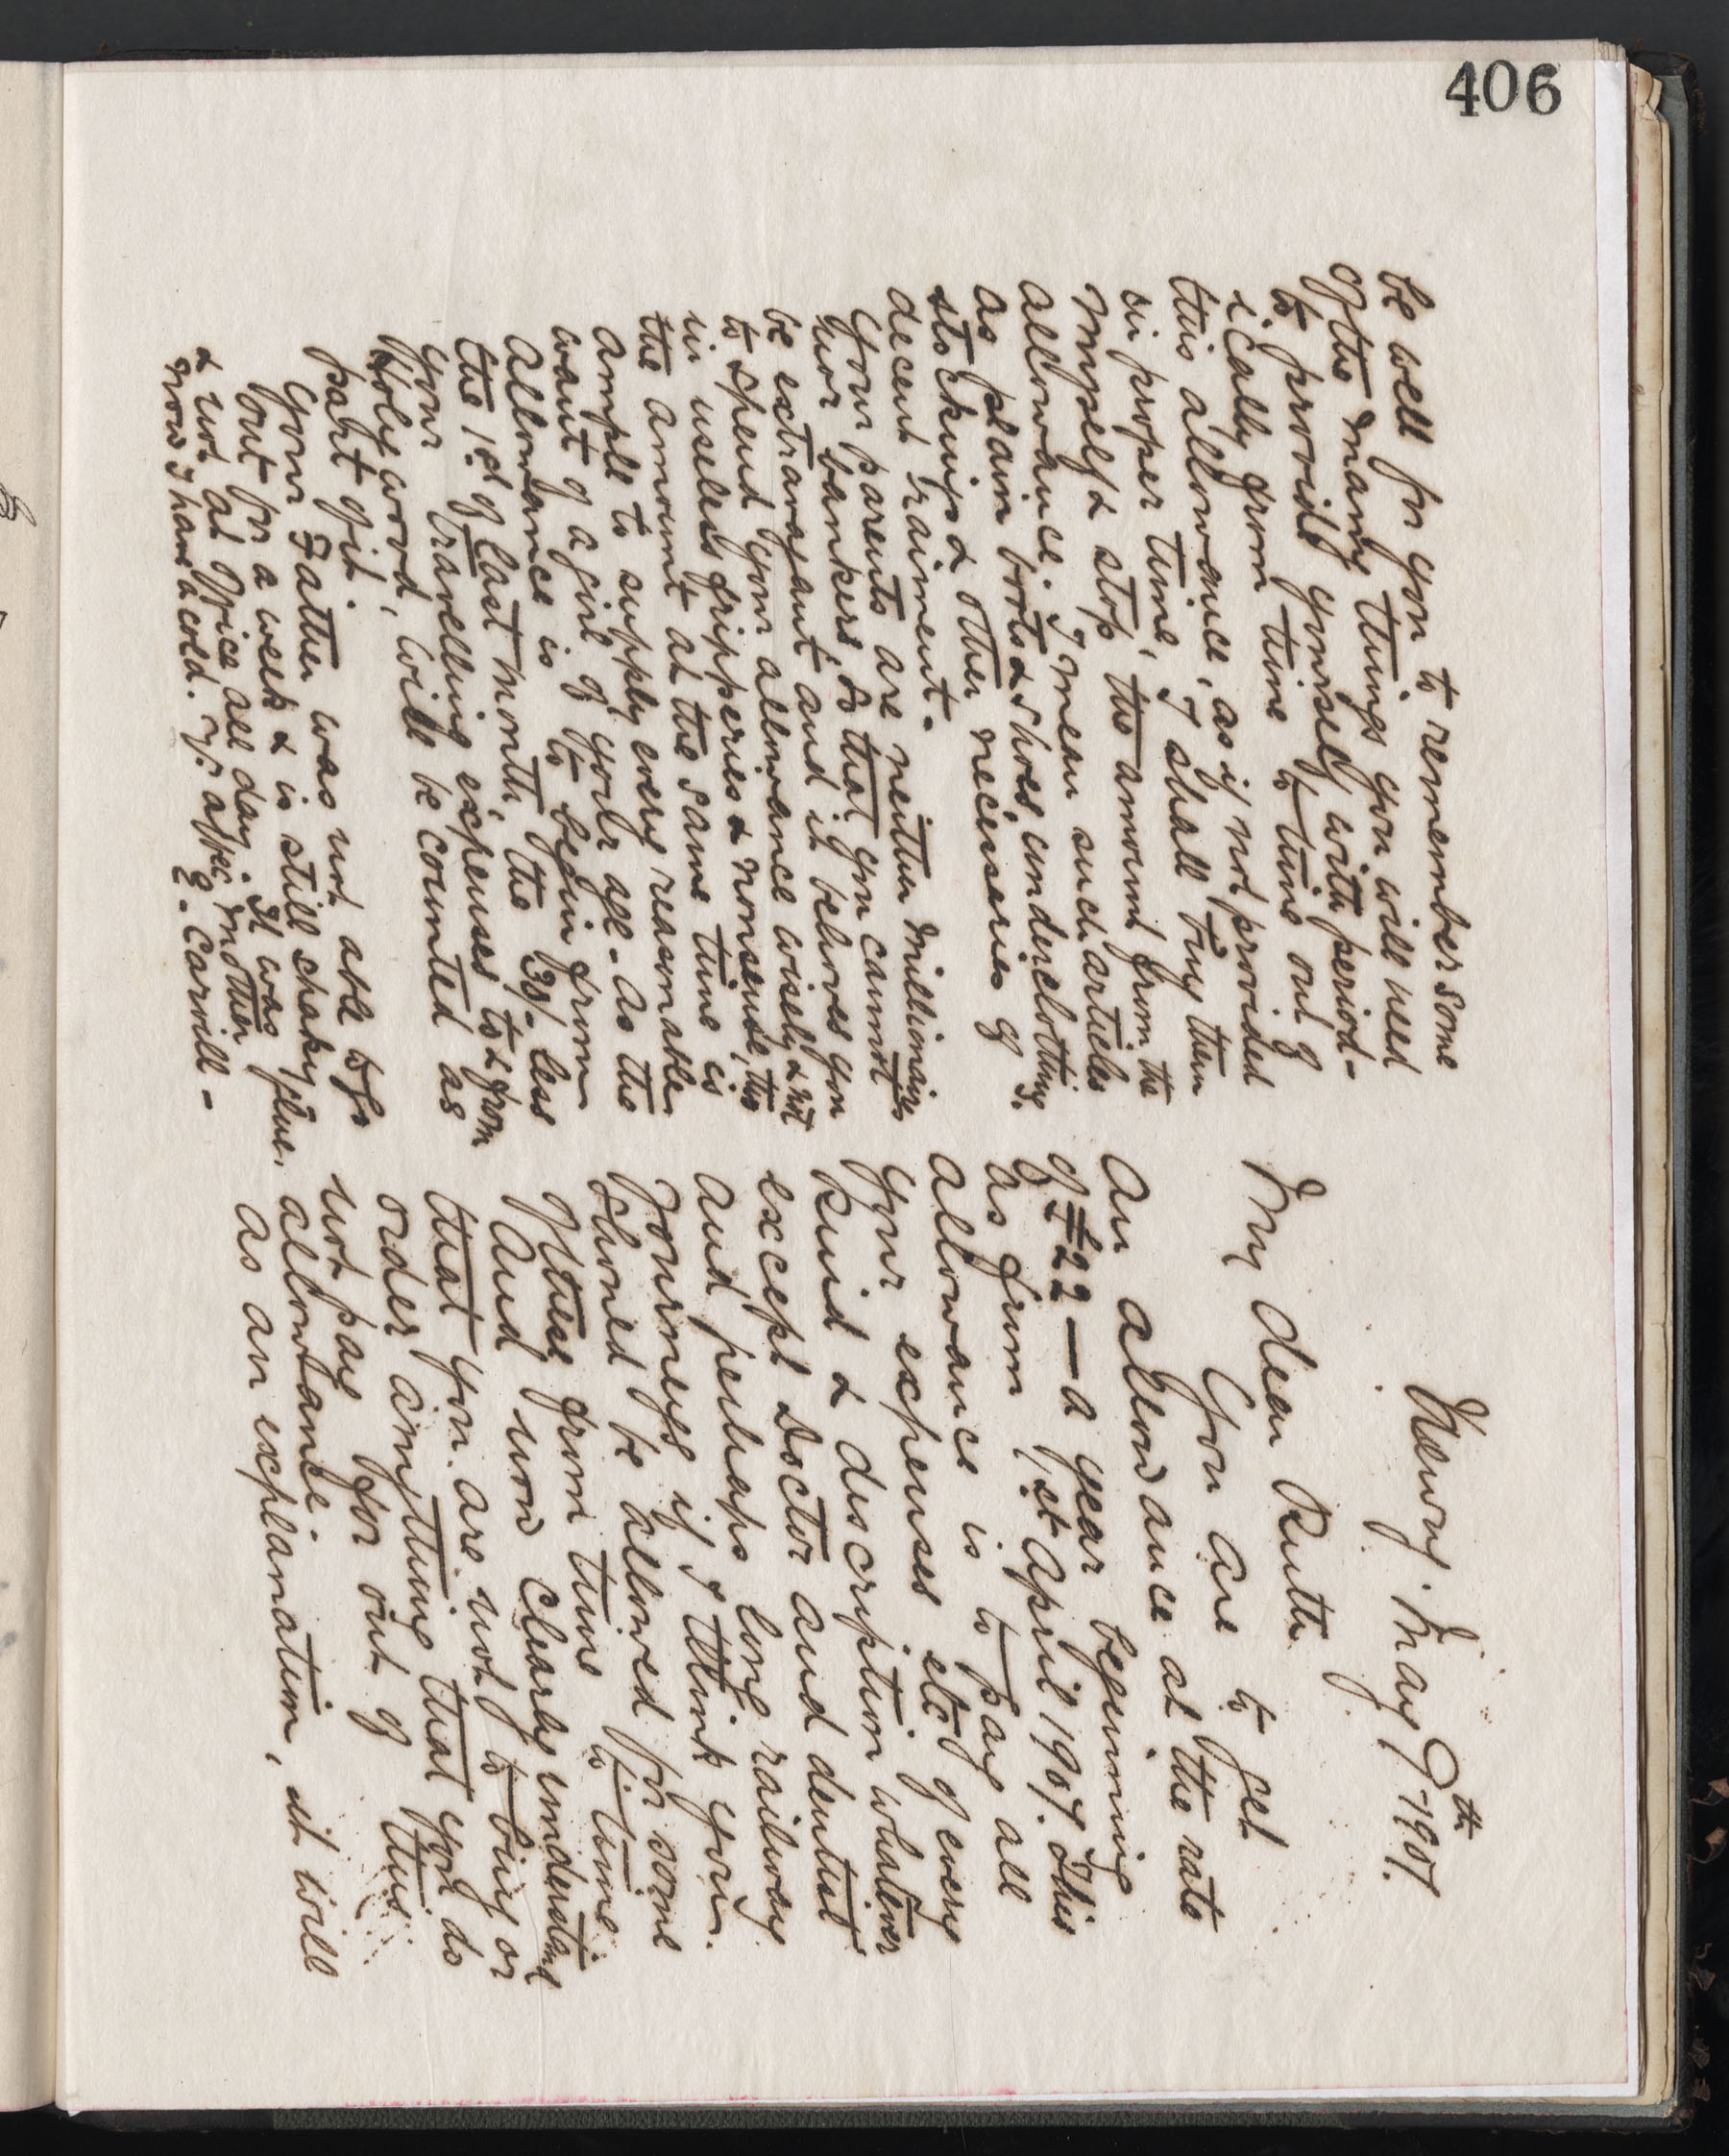 406
Newry. May 9th 1907.
My dear Ruth
You are to get
an allowance at the rate
of £22 — a year beginning
as from 1st April 1907. This
allowance is to pay all
your expenses etc. of every
kind & description whatever
except Doctor and dentist
and perhaps long railway
journeys if I think you
should be allowed for some
of these from time to time.
And now clearly understand
that you are not to buy or
order anything that you do
not pay for out of this
allowance.
As an explanation, it will
be well for you to remember some
of the many things you will need
to provide yourself with period-
ically from time to time out of
this allowance, as if not provided
in proper time, I shall buy them
myself & stop the amount from the
allowance. I mean such articles
as plain boots & shoes, underclothing,
stockings & other necessaries of
decent raiment.
Your parents are neither Millionaires
nor bankers, so that you cannot
be extravagant and it behoves you
to spend your allowance wisely & not
in useless fripperies & nonsense, tho
the amount at the same time is
ample to supply every reasonable
want of a girl of your age - As the
Allowance is to begin from
the 1st of last month, the 30/- less
your travelling expenses to & from
Holywood, will be counted as
part of it.
Your Father was not able to go
out for a week & is still shaky -
& not at office all day. It was flue.
Now I have a cold. Yr. affec. Mother
E. Carvill -